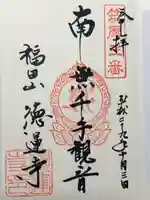 奉拝
平成二十九年十月三日
南無千手観音
福田山 徳運寺